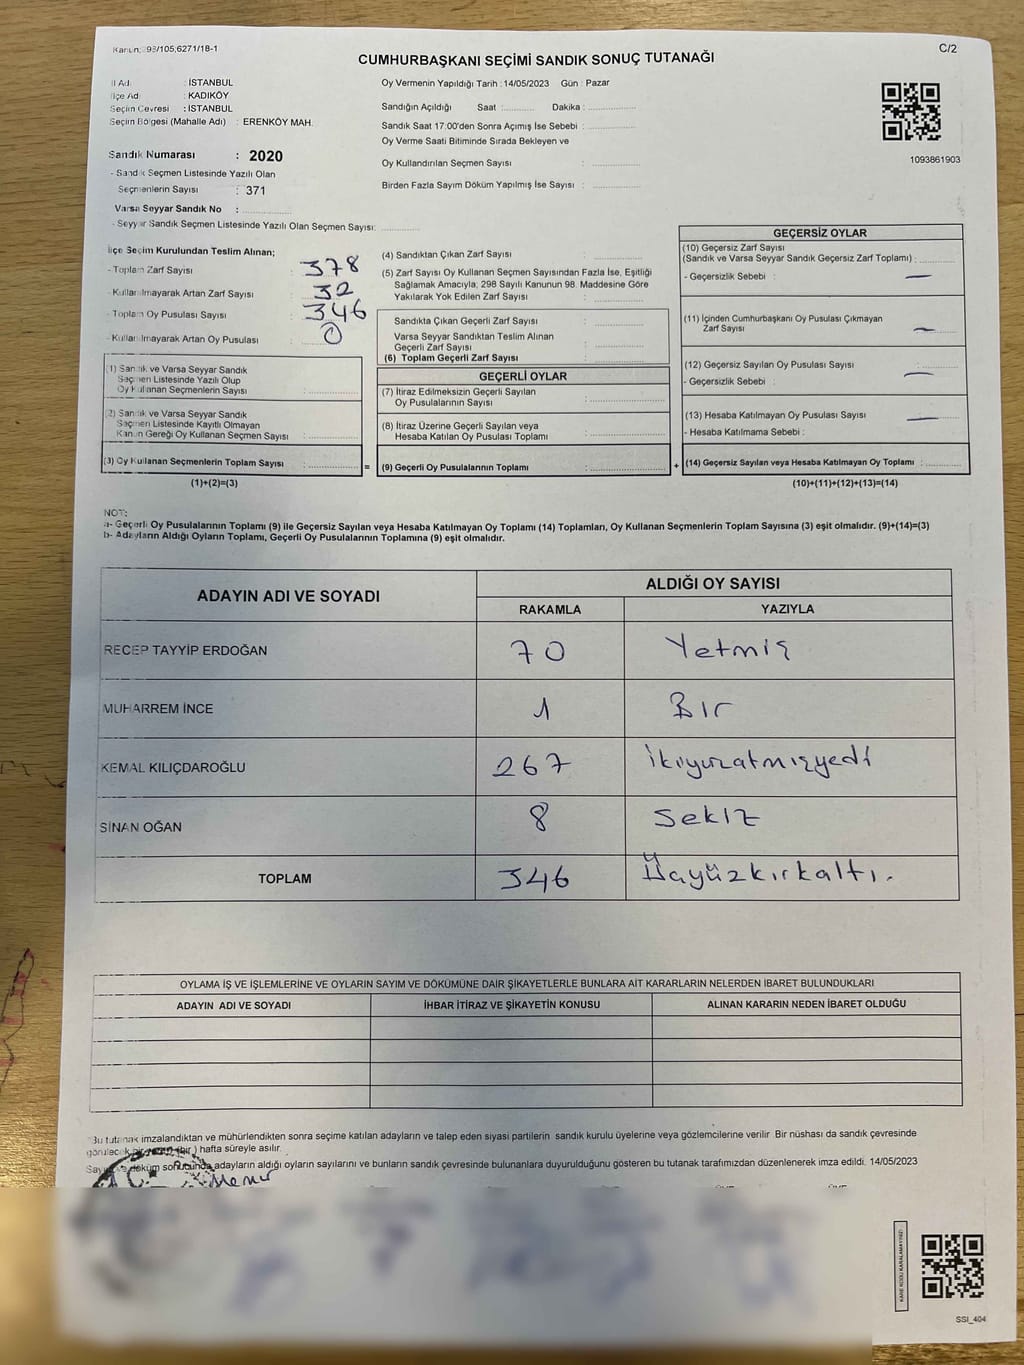 Kanun: 98/105,6271/18-1
C/2
CUMHURBAŞKANI SEÇİMİ SANDIK SONUÇ TUTANAĞI
İl Adı : İSTANBUL
İlçe Adı : KADIKÖY
Seçim Çevresi : İSTANBUL
Seçim Bölgesi (Mahalle Adı) : ERENKÖY MAH.
Sandık Numarası : 2020
- Sandık Seçmen Listesinde Yazılı Olan
Seçmenlerin Sayısı : 371
Varsa Seyyar Sandık No :
- Seyyar Sandık Seçmen Listesinde Yazılı Olan Seçmen Sayısı:
Oy Vermenin Yapıldığı Tarih : 14/05/2023 Gün : Pazar
Sandığın Açıldığı Saat : Dakika :
Sandık Saat 17:00'den Sonra Açımış İse Sebebi :
Oy Verme Saati Bitiminde Sırada Bekleyen ve
Oy Kullandırılan Seçmen Sayısı :
Birden Fazla Sayım Döküm Yapılmış İse Sayısı :
1093861903
İlçe Seçim Kurulundan Teslim Alınan;
- Toplam Zarf Sayısı : 378
- Kullanılmayarak Artan Zarf Sayısı : 32
- Toplam Oy Pusulası Sayısı : 346
- Kullanılmayarak Artan Oy Pusulası : 0
(1) Sandık ve Varsa Seyyar Sandık
Seçmen Listesinde Yazılı Olup
Oy Kullanan Seçmenlerin Sayısı :
(2) Sandık ve Varsa Seyyar Sandık
Seçmen Listesinde Kayıtlı Olmayan
Kanun Gereği Oy Kullanan Seçmen Sayısı :
(3) Oy Kullanan Seçmenlerin Toplam Sayısı : =
(1)+(2)=(3)
(4) Sandıktan Çıkan Zarf Sayısı :
(5) Zarf Sayısı Oy Kullanan Seçmen Sayısından Fazla İse, Eşitliği
Sağlamak Amacıyla, 298 Sayılı Kanunun 98. Maddesine Göre
Yakılarak Yok Edilen Zarf Sayısı :
Sandıkta Çıkan Geçerli Zarf Sayısı :
Varsa Seyyar Sandıktan Teslim Alınan
Geçerli Zarf Sayısı :
(6) Toplam Geçerli Zarf Sayısı :
GEÇERLİ OYLAR
(7) İtiraz Edilmeksizin Geçerli Sayılan
Oy Pusulalarının Sayısı :
(8) İtiraz Üzerine Geçerli Sayılan veya
Hesaba Katılan Oy Pusulası Toplamı :
(9) Geçerli Oy Pusulalarının Toplamı : +
GEÇERSİZ OYLAR
(10) Geçersiz Zarf Sayısı
(Sandık ve Varsa Seyyar Sandık Geçersiz Zarf Toplamı) :
- Geçersizlik Sebebi : —
(11) İçinden Cumhurbaşkanı Oy Pusulası Çıkmayan
Zarf Sayısı : —
(12) Geçersiz Sayılan Oy Pusulası Sayısı : —
- Geçersizlik Sebebi :
(13) Hesaba Katılmayan Oy Pusulası Sayısı : —
- Hesaba Katılmama Sebebi :
(14) Geçersiz Sayılan veya Hesaba Katılmayan Oy Toplamı :
(10)+(11)+(12)+(13)=(14)
NOT:
a- Geçerli Oy Pusulalarının Toplamı (9) ile Geçersiz Sayılan veya Hesaba Katılmayan Oy Toplamı (14) Toplamları, Oy Kullanan Seçmenlerin Toplam Sayısına (3) eşit olmalıdır. (9)+(14)=(3)
b- Adayların Aldığı Oyların Toplamı, Geçerli Oy Pusulalarının Toplamına (9) eşit olmalıdır.
ADAYIN ADI VE SOYADI
ALDIĞI OY SAYISI
RAKAMLA YAZIYLA
RECEP TAYYİP ERDOĞAN 70 Yetmiş
MUHARREM İNCE 1 Bir
KEMAL KILIÇDAROĞLU 267 ikiyuzatmışyedi
SİNAN OĞAN 8 Sekiz
TOPLAM 346 Üçyüzkırkaltı.
OYLAMA İŞ VE İŞLEMLERİNE VE OYLARIN SAYIM VE DÖKÜMÜNE DAİR ŞİKAYETLERLE BUNLARA AİT KARARLARIN NELERDEN İBARET BULUNDUKLARI
ADAYIN ADI VE SOYADI İHBAR İTİRAZ VE ŞİKAYETİN KONUSU ALINAN KARARIN NEDEN İBARET OLDUĞU
Bu tutanak imzalandıktan ve mühürlendikten sonra seçime katılan adayların ve talep eden siyasi partilerin sandık kurulu üyelerine veya gözlemcilerine verilir. Bir nüshası da sandık çevresinde
görülecek bir yere (bir) hafta süreyle asılır.
Sayım ve döküm sonucunda adayların aldığı oyların sayılarını ve bunların sandık çevresinde bulunanlara duyurulduğunu gösteren bu tutanak tarafımızdan düzenlenerek imza edildi. 14/05/2023
KARE KODU KARALAMAYINIZ!
SSI_404